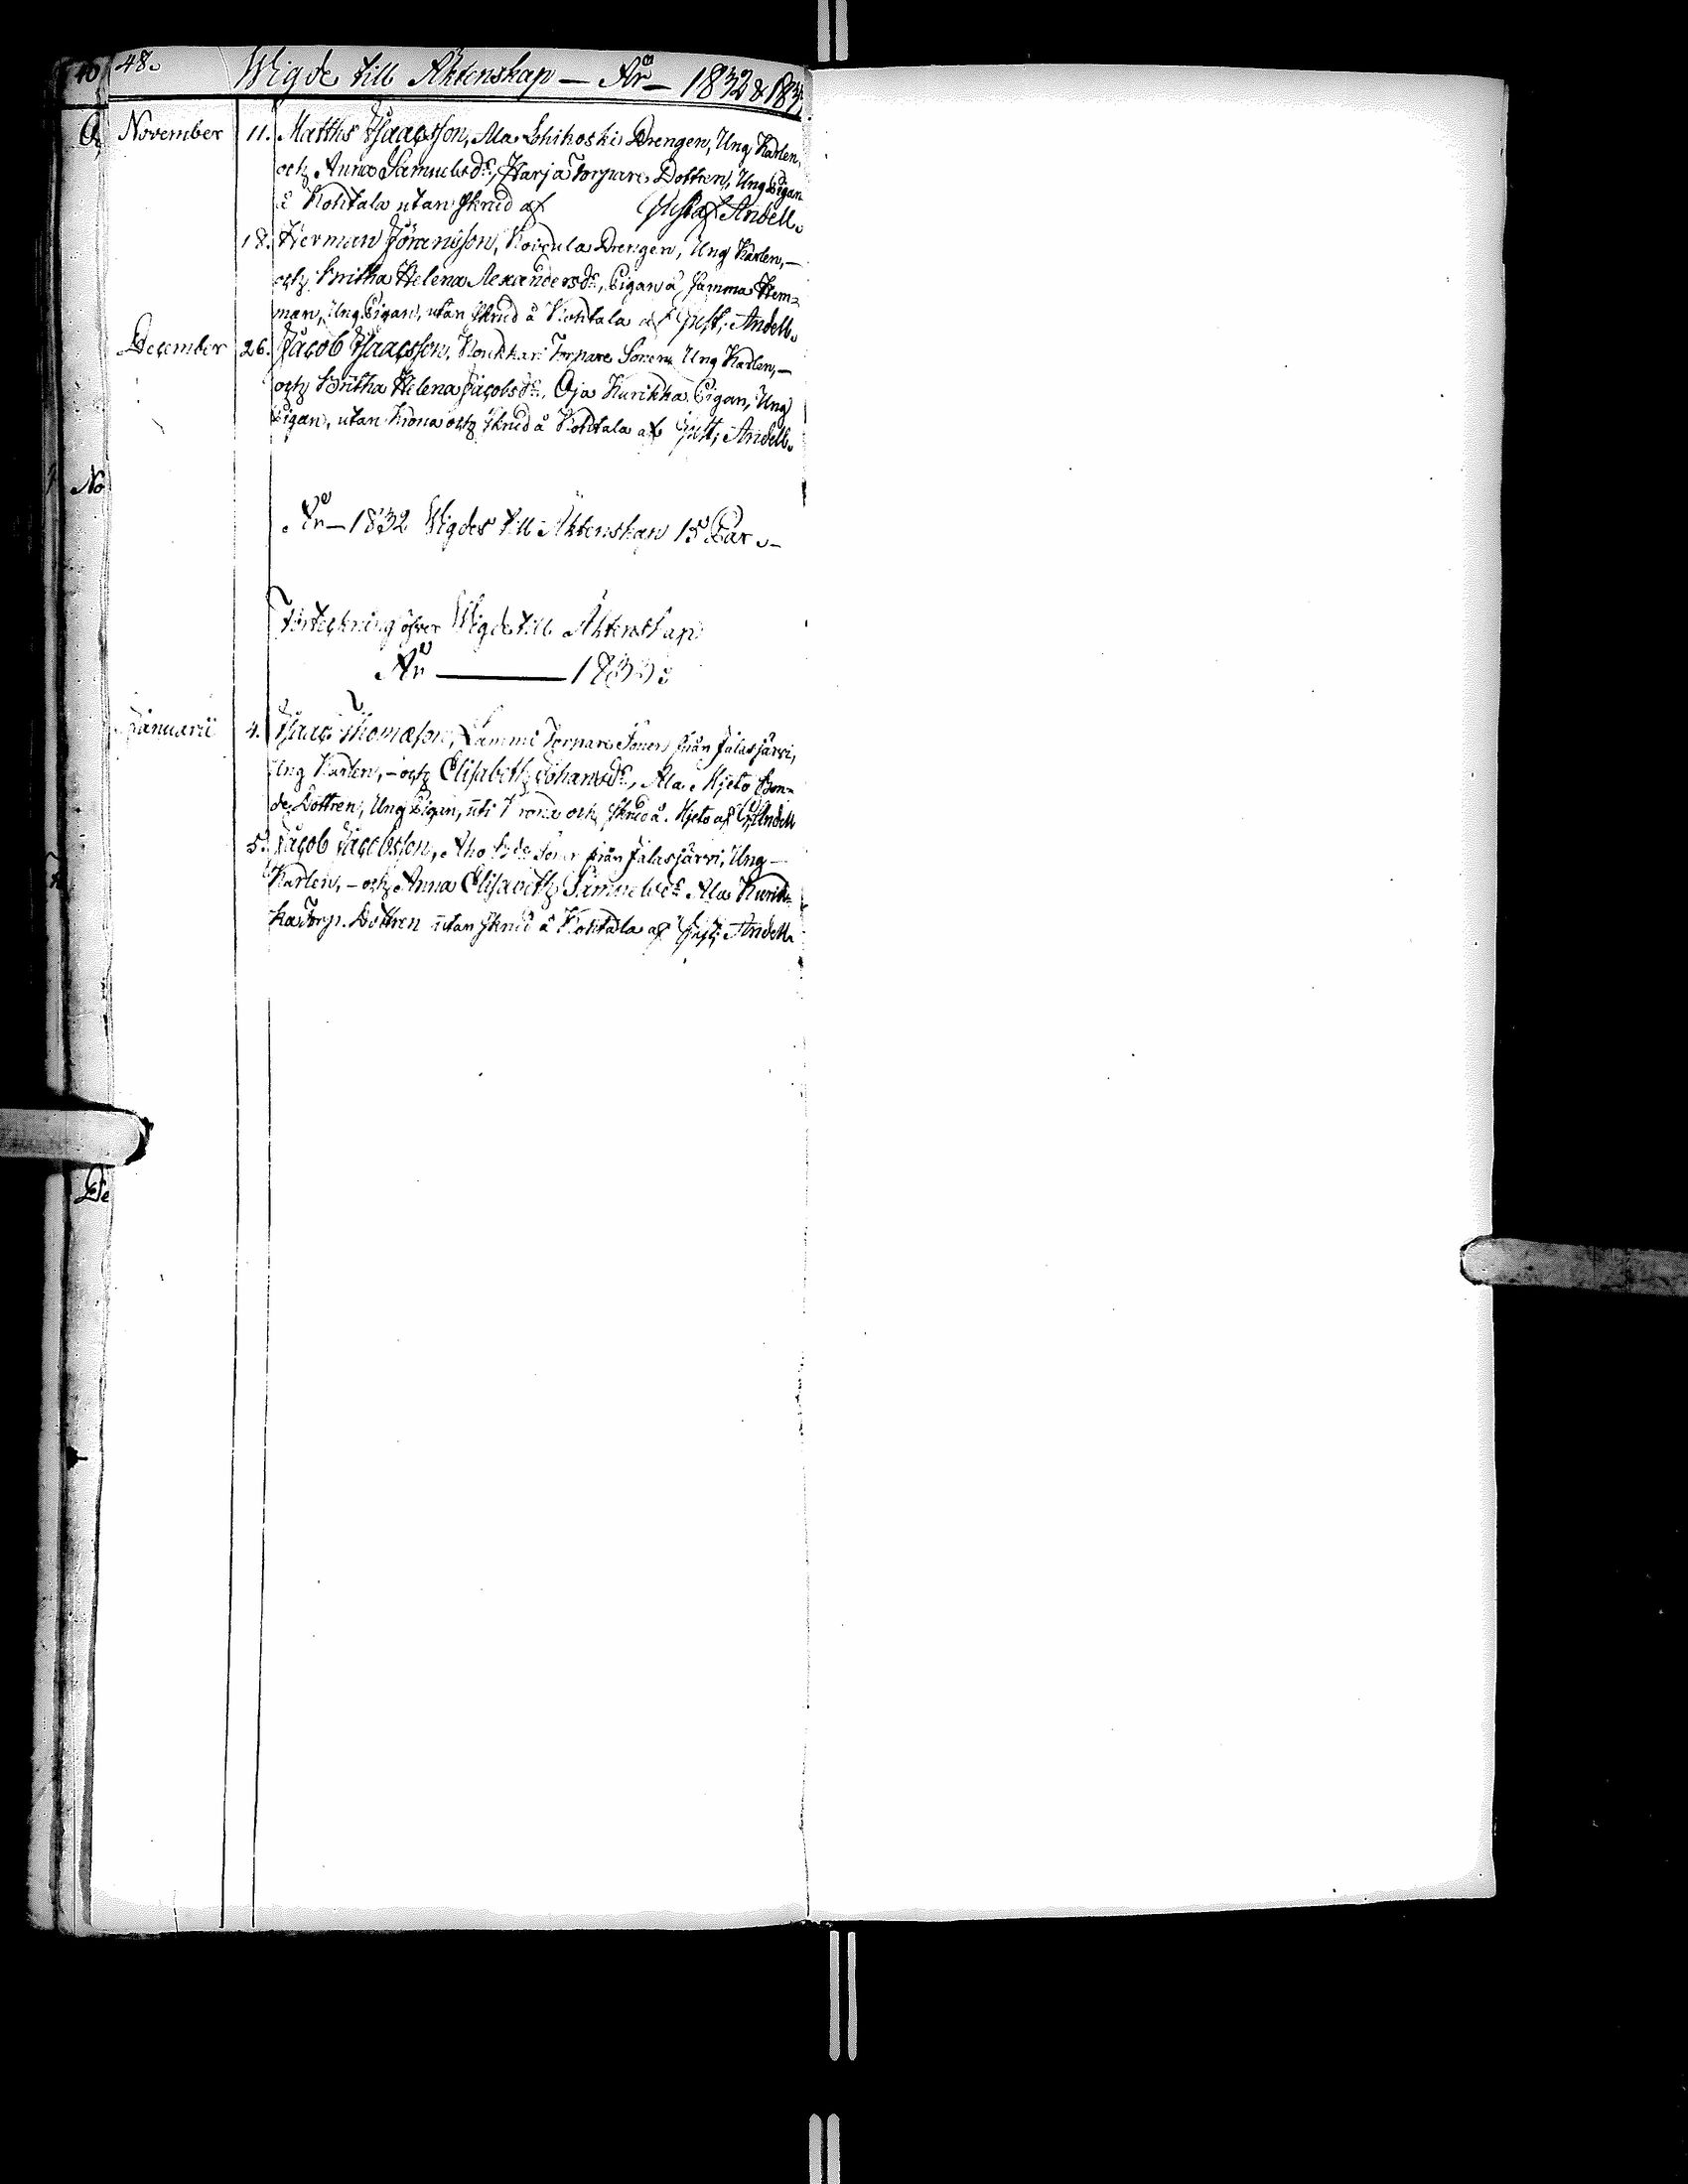 48.
Wigde till Äktenskap — År — 1832 & 183
November 11. Matths Isaacsson, Ala Lohikoski Drengen, Ung Karlen,
och Anna Samuelsdr, Harja Torpare Dottren, Ung Pigan
å Kohtala utan skrud af Gustaf Andell.
18. Herman Jöransson, Koivula Drengen, Ung Karlen, —
och Britha Helena Alexandersdr, Pigan å samma Hem=
man, Ung Pigan, utan skrud å Kohtala af Gust: Andell.
December 26. Jacob Isaacsson, Koukkari Torpare Sonen Ung Karlen, —
och Britha Helena Jacobsdr, Oja Kurikka Pigan, Ung
Pigan, utan Krona och skrud å Kohtala af Gust: Andell.
No
År — 1832 Wigdes till Äktenskap 15 Par. —
Förteckning öfver Wigde till Äktenskap
År — 1833:
Januarii 4. Isaac Thomasson, Lammi Torpare Sonen från Jalasjärvi,
Ung Karlen, — och Elisabeth Johansdr, Ala Mjeto Bon=
de Dottren, Ung Pigan, uti Krona och skrud å Mjeto af G: Andell
5. Jacob Jacobsson, Aho Sonen från Jalasjärvi, Ung —
Karlen, — och Anna Elisabeth Samuelsdr Ala Kurik=
ka Torp. Dottren utan skrud å Kohtala af Gust: Andell.
De